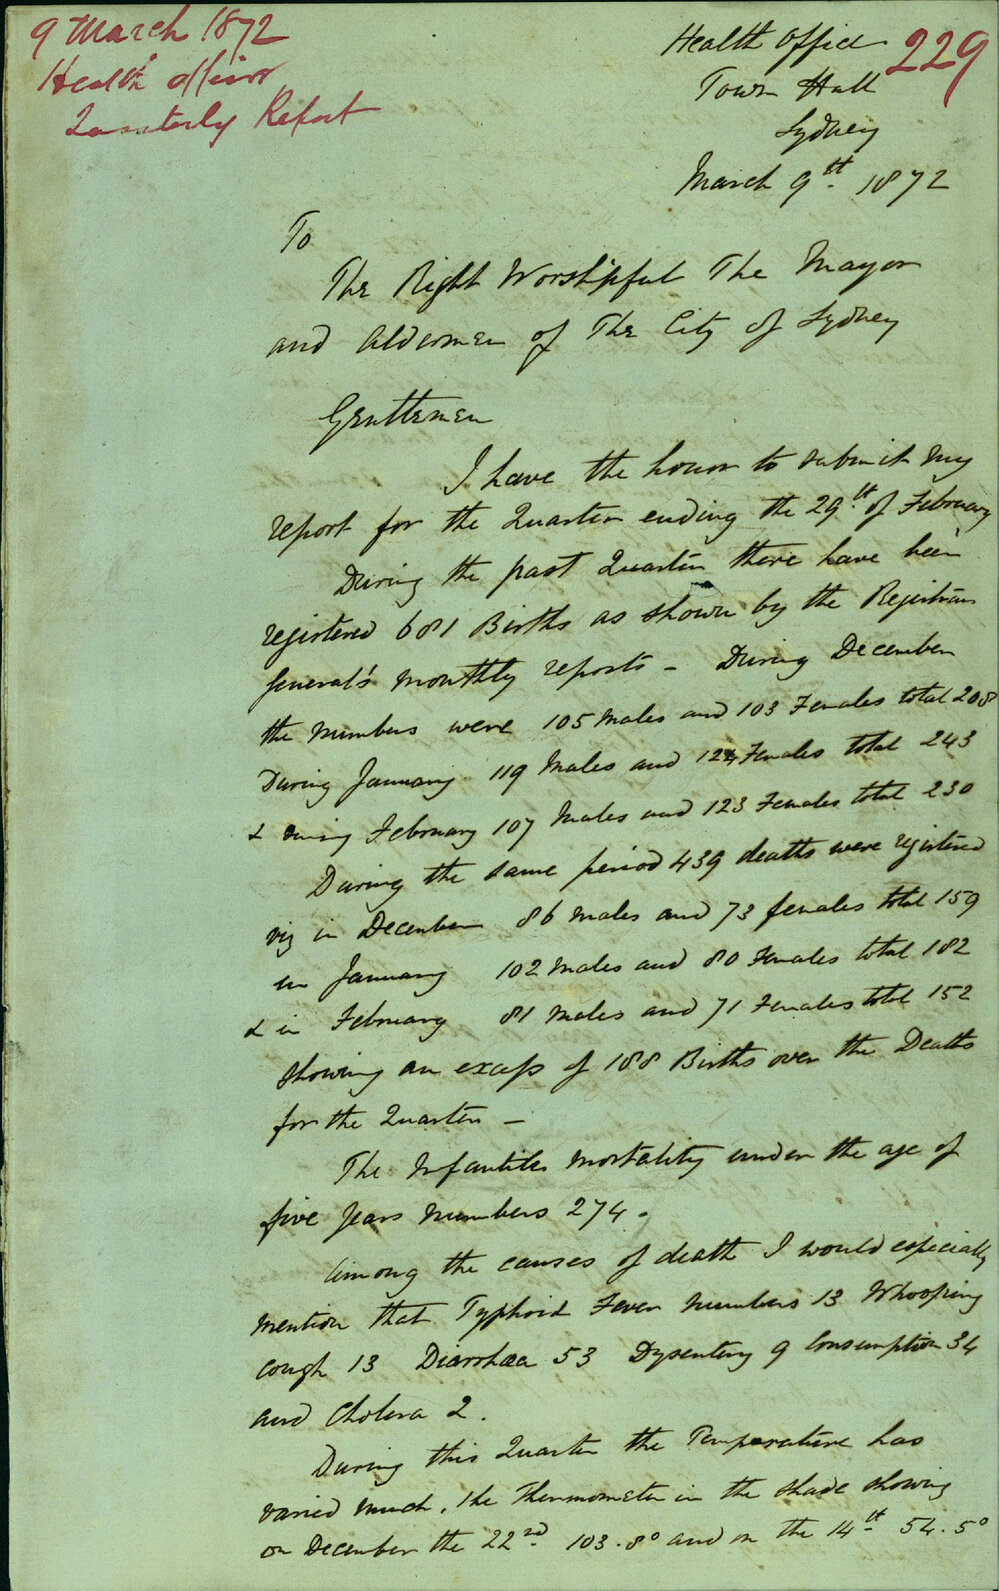 9 March 1872
Health officer
Quarterly Report
229
Health Office
Town Hall
Sydney
March 9th. 1872
To
The Right Worshipful The Mayor
and Aldermen of The City of Sydney
Gentlemen
I have the honor to submit my
report for the Quarter ending the 29th of February
During the past Quarter there have been
registered 681 Births as shown by the Registrar
General's monthly reports – During December
the numbers were 105 Males and 103 Females total 208
During January 119 Males and 124 Females total 243
& during February 107 Males and 123 Females total 230
During the same period 439 deaths were registered
viz in December 86 Males and 73 females total 159
in January 102 Males and 80 Females total 182
& in February 81 Males and 71 Females total 152
showing an excess of 188 Births over the Deaths
for the Quarter –
The Infantile mortality under the age of
five years numbers 274.
Among the causes of death I would especially
mention that Typhoid Fever numbers 13 Whooping
cough 13 Diarrhœa 53 Dysentery 9 Consumption 34
and Cholera 2.
During this Quarter the Temperature has
varied much, the Thermometer in the shade showing
on December the 22nd. 103.8° and on the 14th. 54.5°